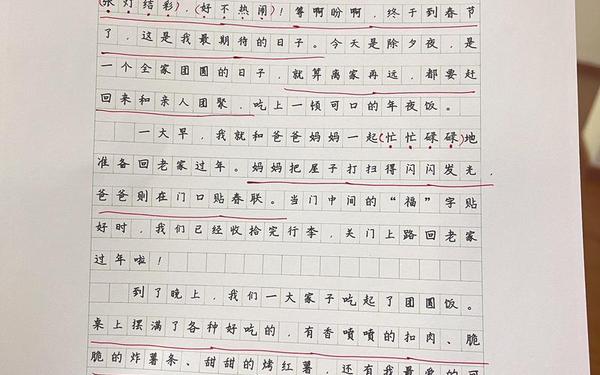 张灯结彩,好不热闹!等啊盼啊,终于到春节
了,这是我最期待的日子。今天是除夕夜,是
一个全家团圆的日子,就算离家再远,都要赶
回来和亲人团聚,吃上一顿可口的年夜饭。
一大早,我就和爸爸妈妈一起(忙忙碌碌)地
准备回老家过年。妈妈把屋子打扫得闪闪发光,
爸爸则在门口贴春联。当门中间的“福”字贴
好时,我们已经收拾完行李,关门上路回老家
过年啦!
到了晚上,我们一大家子吃起了团圆饭。
桌上摆满了各种好吃的,有香喷喷的扣肉、脆
脆的炸薯条、甜甜的烤红薯,还有我最爱的可